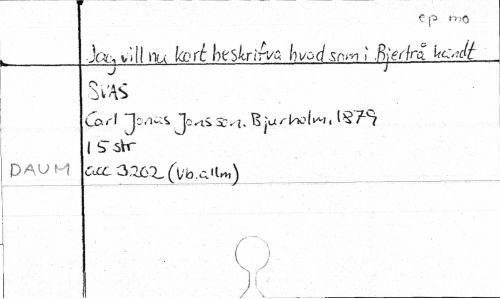 ep mo
Jag vill nu kort beskrifva hvad som i Bjertrå händt
SVAS
Carl Jonas Jonsson, Bjurholm, 1879
15 str
DAUM acc 3202 (Vb. allm)